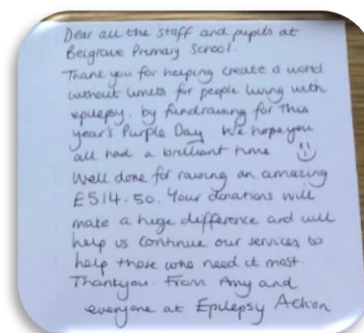 Dear all the staff and pupils at
Belgrave Primary School.
Thank you for helping create a world
without limits for people living with
epilepsy, by fundraising for this
year's Purple Day. We hope you
all had a brilliant time
Well done for raising an amazing
£514.50. Your donations will
make a huge difference and will
help us continue our services to
help those who need it most.
Thankyou. From Amy and
everyone at Epilepsy Action